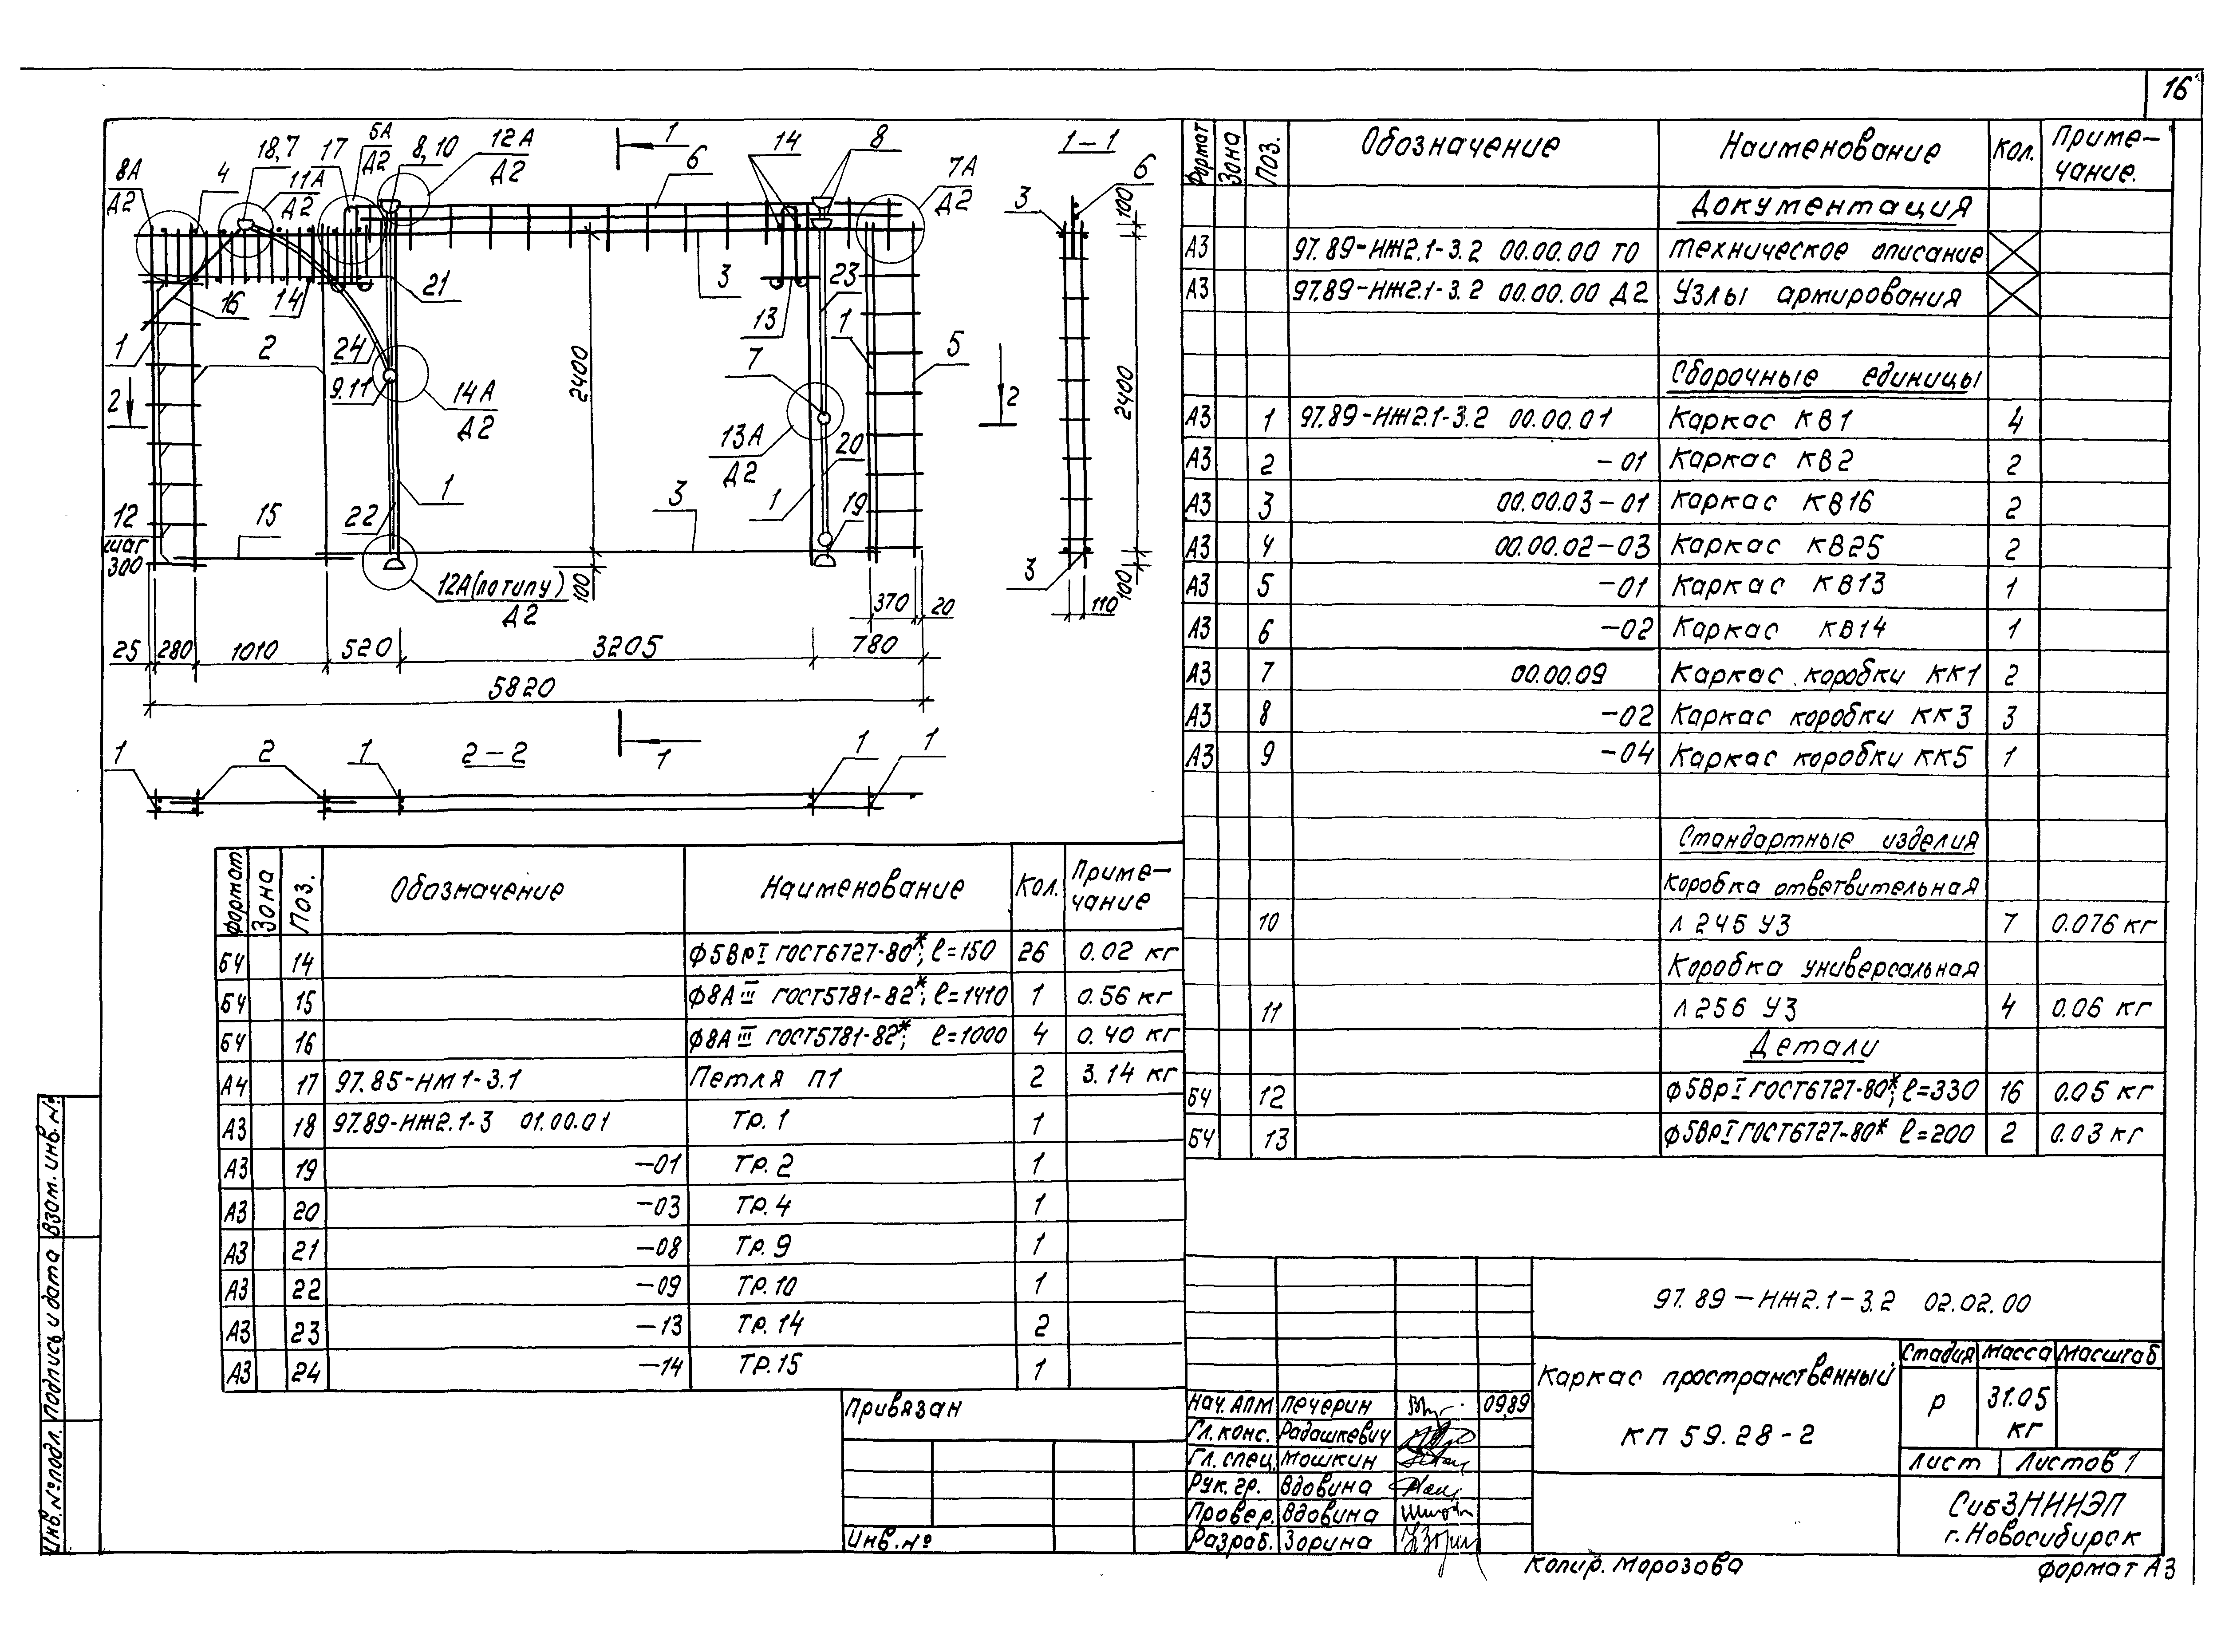 16
8А
Д2
4
18,7
11А
Д2
17
5А
Д2
8,10
12А
Д2
1
6
14
8
7А
Д2
1-1
3
6
100
21
3
23
16
14
13
1
2
24
9.11
14А
Д2
7
1
5
2
2
2400
2400
13А
Д2
20
12
шаг
300
15
22
1
3
1
19
3
100
100
110
12А(по типу)
Д2
370
20
25
280
1010
520
3205
780
5820
1
1
2
1
2-2
1
1
Формат Зона Поз. Обозначение Наименование Кол. Приме-
чание.
Документация
А3 97.89-НЖ2.1-3.2 00.00.00 ТО Техническое описание
А3 97.89-НЖ2.1-3.2 00.00.00 Д2 Узлы армирования
Сборочные единицы
А3 1 97.89-НЖ2.1-3.2 00.00.01 Каркас КВ1 4
А3 2 -01 Каркас КВ2 2
А3 3 00.00.03-01 Каркас КВ16 2
А3 4 00.00.02-03 Каркас КВ25 2
А3 5 -01 Каркас КВ13 1
А3 6 -02 Каркас КВ14 1
А3 7 00.00.09 Каркас коробки КК1 2
А3 8 -02 Каркас коробки КК3 3
А3 9 -04 Каркас коробки КК5 1
Стандартные изделия
Коробка ответвительная
10 Л 245 У3 7 0.076 кг
Коробка универсальная
11 Л256 У3 4 0.06 кг
Детали
БЧ 12 ф5ВрI ГОСТ6727-80*; ℓ=330 16 0.05 кг
БЧ 13 ф5ВрI ГОСТ6727-80* ℓ=200 2 0.03 кг
Формат Зона Поз. Обозначение Наименование Кол. Приме-
чание
БЧ 14 ф5ВрI ГОСТ6727-80*; ℓ=150 26 0.02 кг
БЧ 15 ф8АIII ГОСТ5781-82*; ℓ=1410 1 0.56 кг
БЧ 16 ф8АIII ГОСТ5781-82*; ℓ=1000 4 0.40 кг
А4 17 97.85-НМ1-3.1 Петля П1 2 3.14 кг
А3 18 97.89-НЖ2.1-3 01.00.01 Тр. 1 1
А3 19 -01 Тр. 2 1
А3 20 -03 Тр. 4 1
А3 21 -08 Тр. 9 1
А3 22 -09 Тр. 10 1
А3 23 -13 Тр. 14 2
А3 24 -14 Тр. 15 1
Привязан
Инв. №
97.89-НЖ2.1-3.2 02.02.00
Каркас пространственный
КП 59.28-2
Стадия Масса Масштаб
Р 31.05
кг
Лист Листов 1
СибЗНИИЭП
г. Новосибирск
Нач. АПМ Печерин 09.89
Гл. конс. Радашкевич
Гл. спец. Мошкин
Рук. гр. Вдовина
Провер. Вдовина
Разраб. Зорина
Копир. Морозова
Формат А3
Инв. № подл. Подпись и дата Взам. инв. №